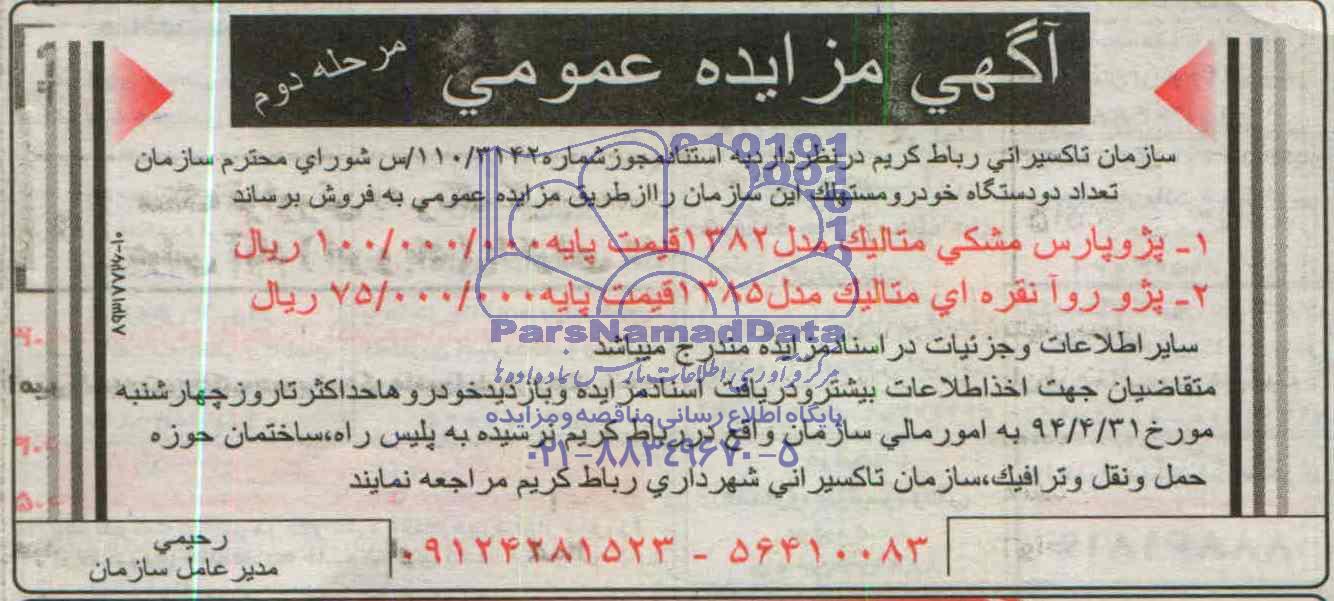 آگهي مزايده عمومي
مرحله دوم
سازمان تاكسيراني رباط كريم درنظرداردبه استنادمجوزشماره۱۱۰/۳۱۴۲/س شوراي محترم سازمان
تعداد دودستگاه خودرومستهلك اين سازمان راازطريق مزايده عمومي به فروش برساند
۱- پژوپارس مشكي متاليك مدل۱۳۸۲قيمت پايه۱۰۰/۰۰۰/۰۰۰ ريال
۲- پژو روآ نقره اي متاليك مدل۱۳۸۵قيمت پايه۷۵/۰۰۰/۰۰۰ ريال
سايراطلاعات وجزئيات دراسنادمزايده مندرج ميباشد
متقاضيان جهت اخذاطلاعات بيشترودريافت اسنادمزايده وبازديدخودروهاحداكثرتاروزچهارشنبه
مورخ۹۴/۴/۳۱ به امورمالي سازمان واقع دررباط كريم نرسيده به پليس راه،ساختمان حوزه
حمل ونقل وترافيك،سازمان تاكسيراني شهرداري رباط كريم مراجعه نمايند
۰۹۱۲۴۲۸۱۵۲۳ - ۵۶۴۱۰۰۸۳
رحيمي
مديرعامل سازمان
ParsNamadData
مرکز فرآوری اطلاعات پارس نماد داده ها
پایگاه اطلاع رسانی مناقصه و مزایده
۰۲۱-۸۸۳۴۹۶۷۰-۵